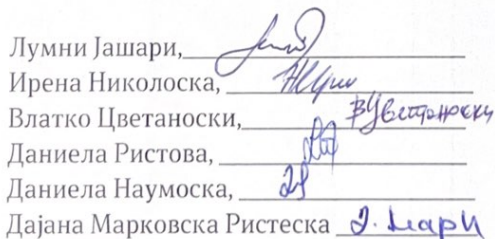 Лумни Јашари,
Ирена Николоска,
Влатко Цветаноски, ВЦветаноски
Даниела Ристова,
Даниела Наумоска,
Дајана Марковска Ристеска